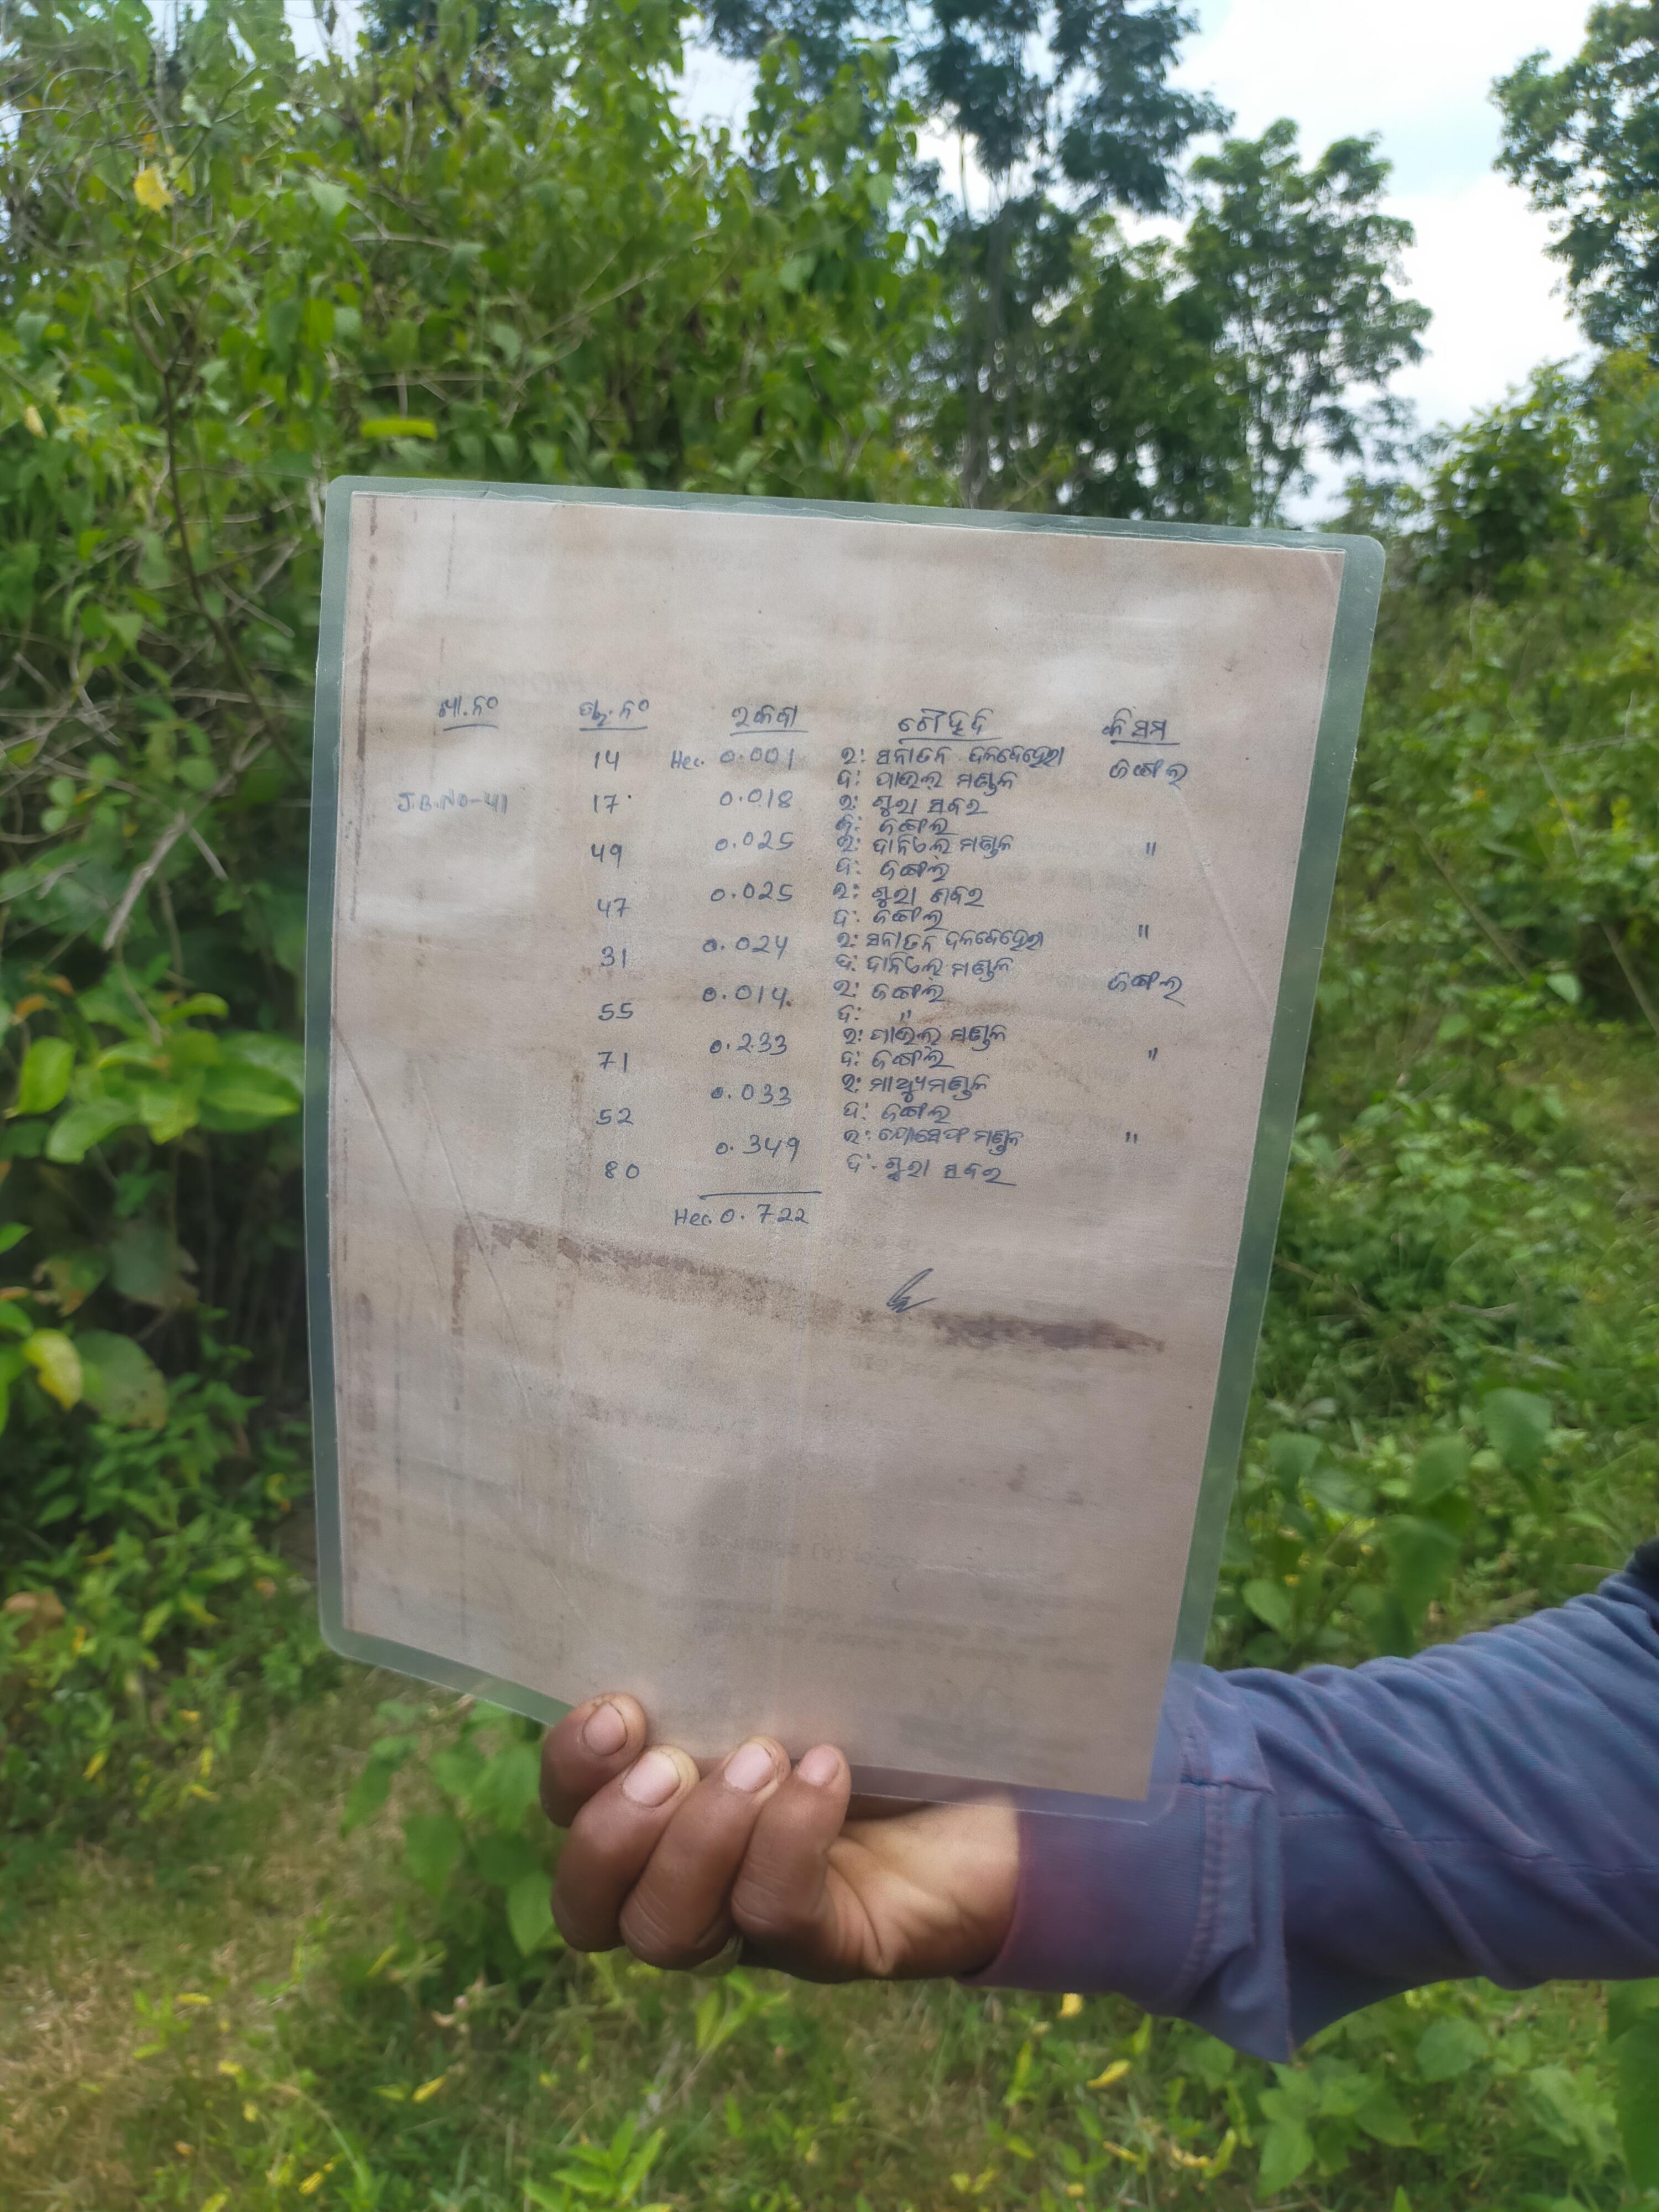 ଖା.ନଂ ପ୍ଲ.ନଂ ରକବା ଚୌହଦି କିସମ
14 Hec. 0.001 ଉ: ସନାତନ ଦଳବେହେରା ଜଙ୍ଗଲ
ଦ: ପାଉଲ ମଣ୍ଡଳ
J.B.NO-41 17 0.018 ଉ: ଶୁରା ସବର
ଦ: ଜଙ୍ଗଲ
49 0.025 ଉ: ଦାନିଏଲ ମଣ୍ଡଳ "
ଦ: ଜଙ୍ଗଲ
47 0.025 ଉ: ଶୁରା ଶବର
ଦ: ଜଙ୍ଗଲ
31 0.024 ଉ: ସନାତନ ଦଳବେହେରା "
ଦ: ଦାନିଏଲ ମଣ୍ଡଳ
55 0.014 ଉ: ଜଙ୍ଗଲ ଜଙ୍ଗଲ
ଦ: "
71 0.233 ଉ: ପାଉଲ ମଣ୍ଡଳ "
ଦ: ଜଙ୍ଗଲ
52 0.033 ଉ: ମାଥ୍ୟୁ ମଣ୍ଡଳ
ଦ: ଜଙ୍ଗଲ
80 0.349 ଉ: ଯୋସେଫ ମଣ୍ଡଳ "
ଦ: ଶୁରା ସବର
Hec. 0.722